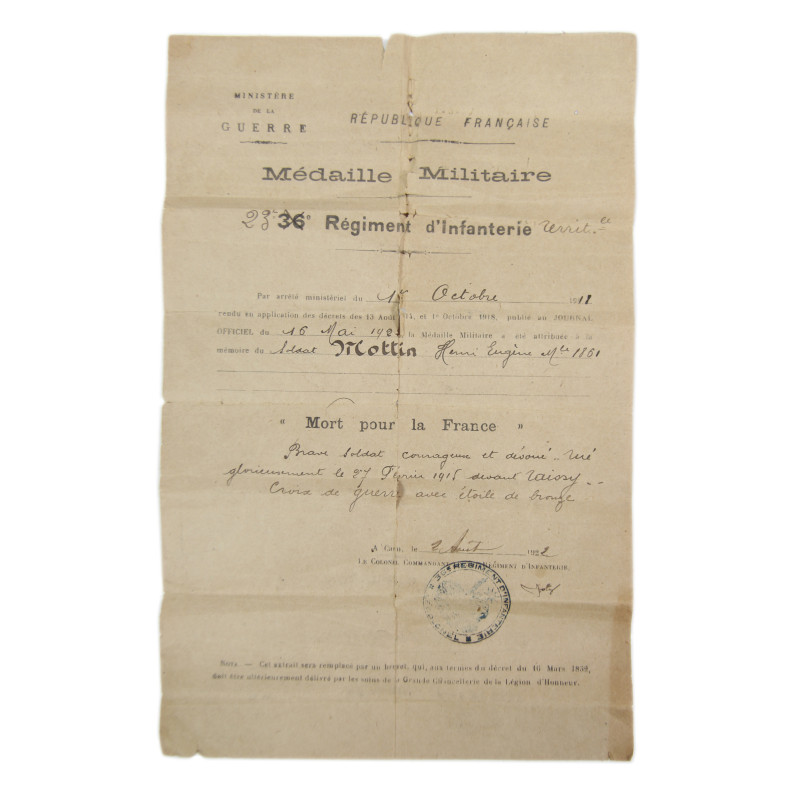 MINISTÈRE
DE LA
GUERRE
RÉPUBLIQUE FRANÇAISE
Médaille Militaire
23e 36e Régiment d'Infanterie Territ.le
Par arrêté ministériel du 1er Octobre 191
rendu en application des décrets des 13 Août 1914, et 1er Octobre 1918, publié au JOURNAL
OFFICIEL du 16 Mai 192 la Médaille Militaire a été attribuée à la
mémoire du soldat Mottin Henri Eugène Mle 1861
« Mort pour la France »
Brave soldat courageux et dévoué. Tué
glorieusement le 27 Février 1915 devant
Croix de guerre avec étoile de bronze
A Caen, le 2 Août 1922
LE COLONEL COMMANDANT RÉGIMENT D'INFANTERIE,
36e REGIMENT D'INFANTERIE
NOTA — Cet extrait sera remplacé par un brevet, qui, aux termes du décret du 16 Mars 1852,
doit être ultérieurement délivré par les soins de la Grande Chancellerie de la Légion d'Honneur.